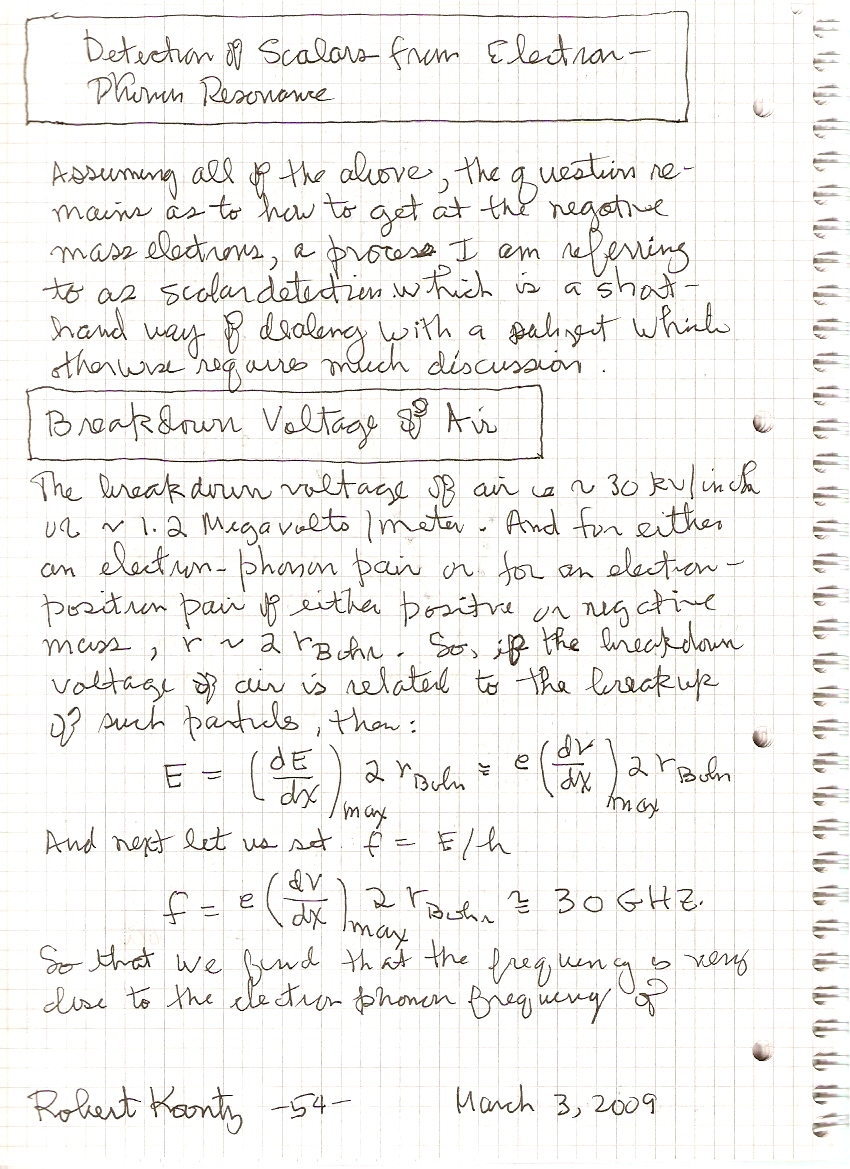 Detection of Scalars from Electron-
Phonon Resonance
Assuming all of the above, the question re-
mains as to how to get at the negative
mass electrons, a process I am referring
to as scalar detection which is a short-
hand way of dealing with a subject which
otherwise requires much discussion.
Breakdown Voltage of Air
The breakdown voltage of air is ~ 30 kv/inch
or ~ 1.2 Megavolts/meter. And for either
an electron-phonon pair or for an electron-
positron pair of either positive or negative
mass, r ~ 2 rBohr. So, if the breakdown
voltage of air is related to the breakup
of such particles, then:
E = (dE/dx)max 2 rBohr ≅ e (dV/dx)max 2 rBohr
And next let us set f = E/h
f = e (dV/dx)max 2 rBohr ≅ 30 GHZ.
So that we find that the frequency is very
close to the electron phonon frequency of
Robert Koontz -54- March 3, 2009